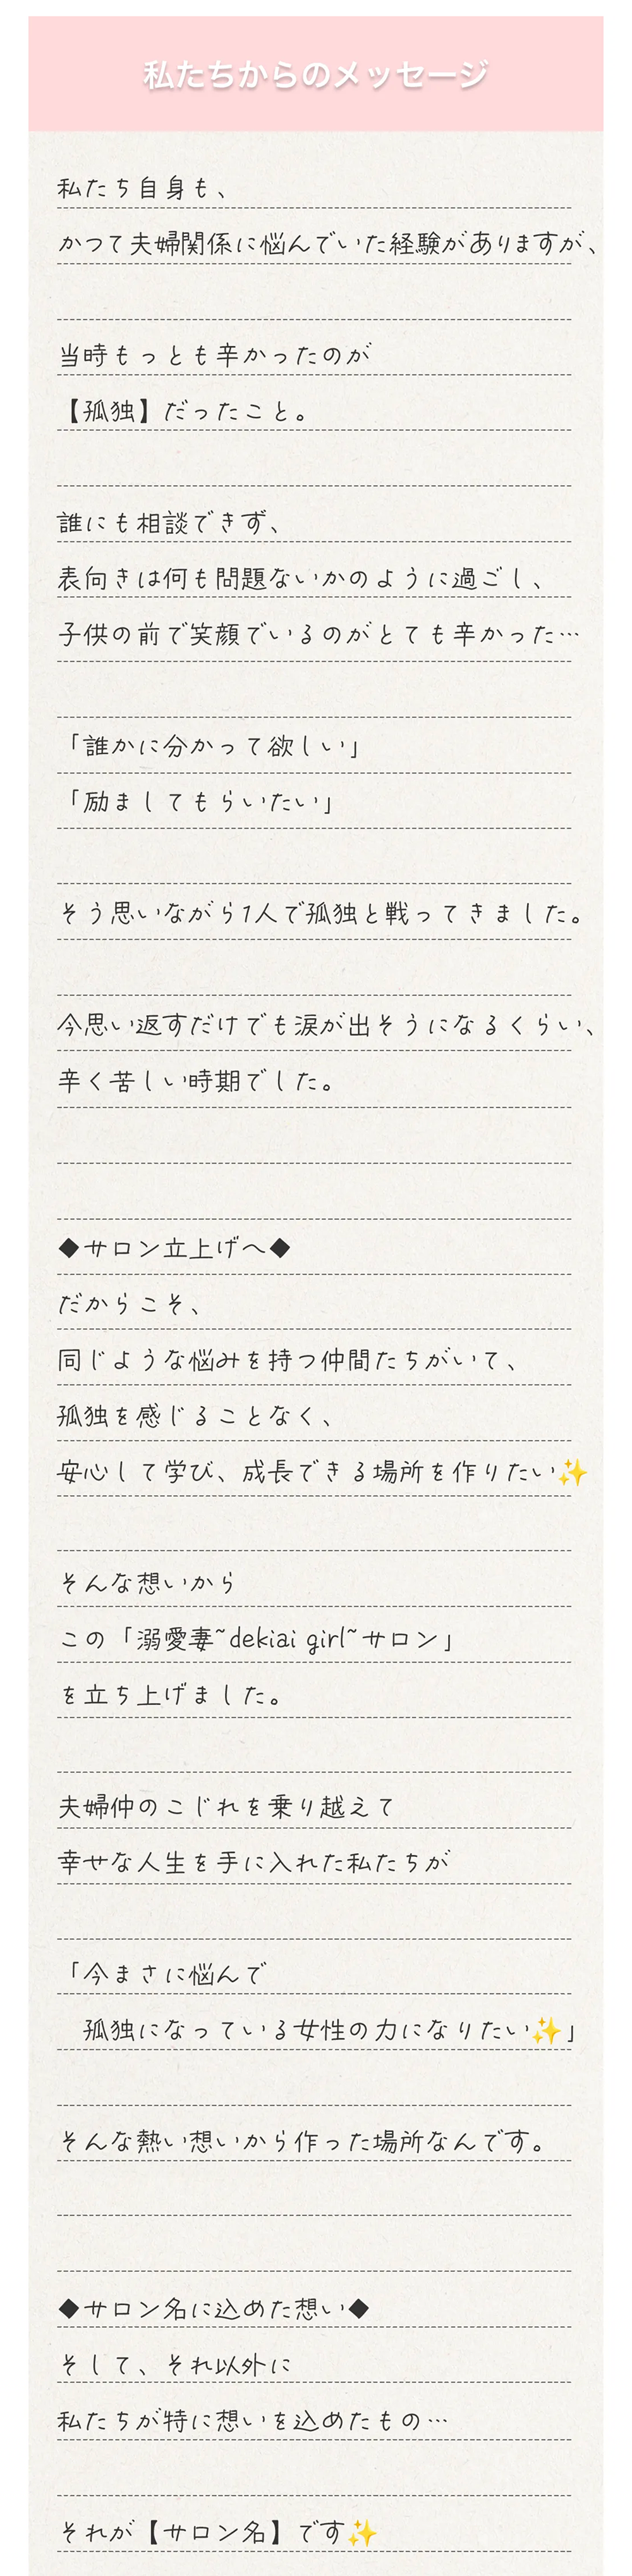 私たちからのメッセージ
私たち自身も、
かつて夫婦関係に悩んでいた経験がありますが、
当時もっとも辛かったのが
【孤独】だったこと。
誰にも相談できず、
表向きは何も問題ないかのように過ごし、
子供の前で笑顔でいるのがとても辛かった…
「誰かに分かって欲しい」
「励ましてもらいたい」
そう思いながら1人で孤独と戦ってきました。
今思い返すだけでも涙が出そうになるくらい、
辛く苦しい時期でした。
◆サロン立上げへ◆
だからこそ、
同じような悩みを持つ仲間たちがいて、
孤独を感じることなく、
安心して学び、成長できる場所を作りたい✨
そんな想いから
この「溺愛妻~dekiai girl~サロン」
を立ち上げました。
夫婦仲のこじれを乗り越えて
幸せな人生を手に入れた私たちが
「今まさに悩んで
　孤独になっている女性の力になりたい✨」
そんな熱い想いから作った場所なんです。
◆サロン名に込めた想い◆
そして、それ以外に
私たちが特に想いを込めたもの…
それが【サロン名】です✨